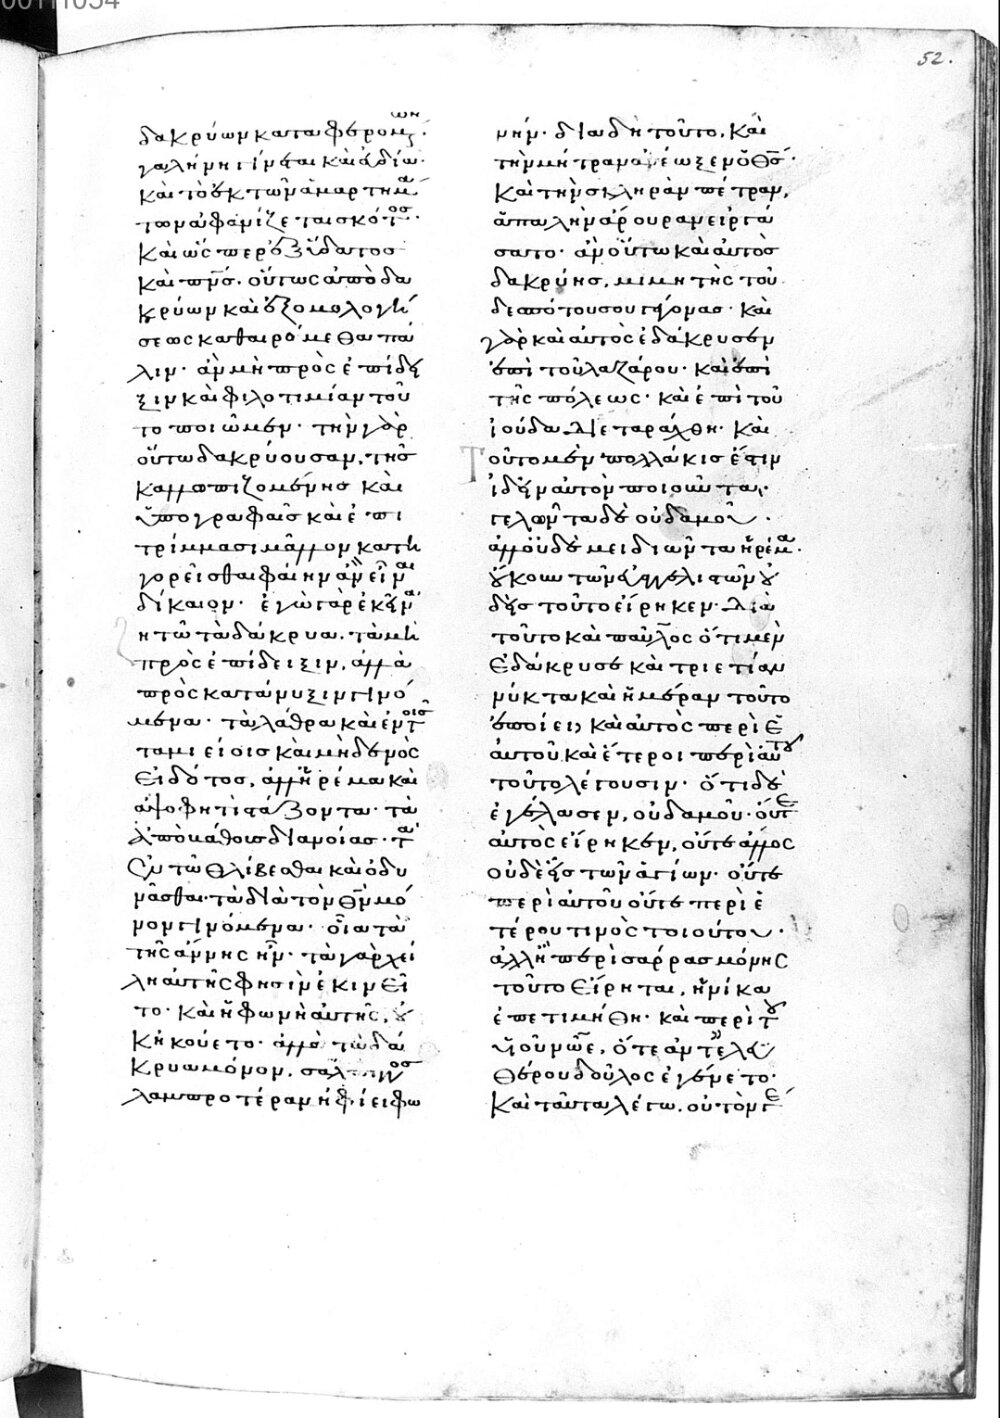 52.
δακρύων καταφερομ(έν)ων·
γαλήνη γίνεται καὶ εὐδία·
καὶ τὸ ἐκ τῶν ἁμαρτημά
των ἀφανίζεται σκότος·
Καὶ ὥσπερ ἐξ ὕδατος
καὶ πν̅ς· οὕτως ἀπὸ δα
κρύων καὶ ἐξομολογή
σεως καθαιρόμεθα πά
λιν· ἂν μὴ πρὸς ἐπίδει
ξιν καὶ φιλοτιμίαν τοῦ
το ποιῶμεν· τὴν γὰρ
οὕτω δακρύουσαν, τῆς
καλλωπιζομένης καὶ
ὑπογραφαῖς καὶ ἐπι
τρίμμασι μᾶλλον κατη
γορεῖσθαι φαίην ἂν εἶναι
δίκαιον· ἐγὼ γὰρ ἐκεῖνα
ζητῶ τὰ δάκρυα. τὰ μὴ
πρὸς ἐπίδειξιν, ἀλλὰ
πρὸς κατάνυξιν γινό
μενα· τὰ λάθρα καὶ ἐν τοῖς
ταμιείοις καὶ μηδενὸς
εἰδότος, ἀλλ' ἠρέμα καὶ
ἀψοφητὶ στάζοντα· τὰ
ἀπὸ βάθους διανοίας· τὰ
ἐν τῷ θλίβεσθαι καὶ ὀδυ
νᾶσθαι· τὰ διὰ τὸν θν̅ μό
νον γινόμενα· οἷα τὰ
τῆς ἄννης ἦν· τὰ γὰρ χεί
λη αὐτῆς φησιν ἐκινεῖ
το· καὶ ἡ φωνὴ αὐτῆς, οὐ
κ ἠκούετο· ἀλλὰ τὰ δά
κρυα μόνον, σάλπιγγος
λαμπροτέραν ἠφίει φω
νήν· διὰ δὴ τοῦτο, καὶ
τὴν μήτραν ἀνέωξεν ὁ θς̅·
καὶ τὴν σκληρὰν πέτραν,
ἁπαλὴν ἄρουραν εἰργά
σατο· ἂν οὕτω καὶ αὐτὸς
δακρύῃς, μιμητὴς τοῦ
δεσπότου σου γέγονας· καὶ
γὰρ καὶ αὐτὸς ἐδάκρυσεν
ἐπὶ τοῦ λαζάρου· καὶ ἐπὶ
τῆς πόλεως· καὶ ἐπὶ τοῦ
ἰούδα διεταράχθη· καὶ
τοῦτο μὲν πολλάκις ἔστιν
ἰδεῖν αὐτὸν ποιοῦντα·
γελῶντα δὲ οὐδαμοῦ·
ἀλλ' οὐδὲ μειδιῶντα ἠρέμα·
οὔκουν τῶν εὐαγγελιστῶν οὐ
δεὶς τοῦτο εἴρηκεν· διὰ
τοῦτο καὶ παῦλος ὅτι μὲν
ἐδάκρυσε καὶ τριετίαν
νύκτα καὶ ἡμέραν τοῦτο
ἐποίει, καὶ αὐτὸς περὶ ἑ
αυτοῦ καὶ ἕτεροι περὶ αὐτοῦ
τοῦτο λέγουσιν· ὅτι δὲ
ἐγέλασεν, οὐδαμοῦ· οὔτε
αὐτὸς εἴρηκεν, οὔτε ἄλλος
οὐδεὶς τῶν ἁγίων· οὔτε
περὶ αὐτοῦ οὔτε περὶ ἑ
τέρου τινὸς τοιούτου·
ἀλλ' ἢ περὶ σάρρας μόνης
τοῦτο εἴρηται, ἡνίκα
ἐπετιμήθη· καὶ περὶ τοῦ
υἱοῦ νῶε, ὅτε ἀντ' ἐλευ
θέρου δοῦλος ἐγένετο·
Καὶ ταῦτα λέγω. οὐ τὸν γέ